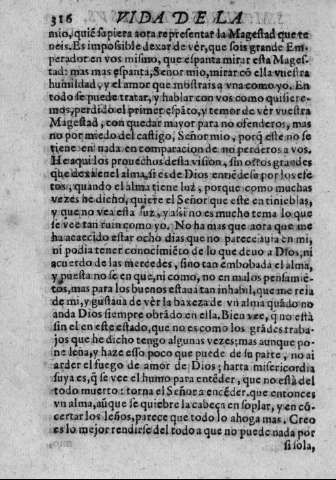 316 VIDA DE LA
mio, quiẽ supiera aora representar la Magestad que te
neis. Es impossible dexar de vèr, que sois grande Em-
perador en vos mismo, que espanta mirar esta Mages-
tad: mas mas espanta, Señor mio, mirar cõ ella vuestra
humildad, y el amor que mostrais a vna como yo. En
todo se puede tratar, y hablar con vos como quisiere-
mos, perdido el primer espãto, y temor de vèr vuestra
Magestad, con quedar mayor para no ofenderos, mas
no por miedo del castigo, Señor mio, porq̃ este no se
tiene en nada en comparacion de no perderos a vos.
He aqui los prouechos desta vision, sin otros grandes
que dexa en el alma, si es de Dios entiẽdese por los efe
tos, quando el alma tiene luz, porque como muchas
vezes he dicho, quiere el Señor que estè en tinieblas,
y que no vea esta luz, y assi no es mucho tema lo que
se vee tan ruin como yo. No ha mas que aora que me
ha acaecido estar ocho dias que no parece auia en mi,
ni podia tener conocimiẽto de lo que deuo a Dios, ni
acuerdo de las mercedes, sino tan embobada el alma,
y puesta no sè en que, ni como, no en malos pensamiẽ-
tos, mas para los buenos estaua tan inhabil, que me reia
de mi, y gustaua de vèr la baxeza de vn alma quãdo no
anda Dios siempre obrãdo en ella. Bien vee, q̃ no està
sin el en este estado, que no es como los grãdes traba-
jos que he dicho tengo algunas vezes; mas aunque po-
ne leña, y haze esso poco que puede de su parte, no ai
arder el fuego de amor de Dios; harta misericordia
suya es, q̃ se vee el humo para entẽder, que no està del
todo muerto: torna el Señor a encẽder, que entonces
vn alma, aũque se quiebre la cabeça en soplar, y en cõ-
certar los leños, parece que todo lo ahoga mas. Creo
es lo mejor rendirse del todo a que no puede nada por
si sola,